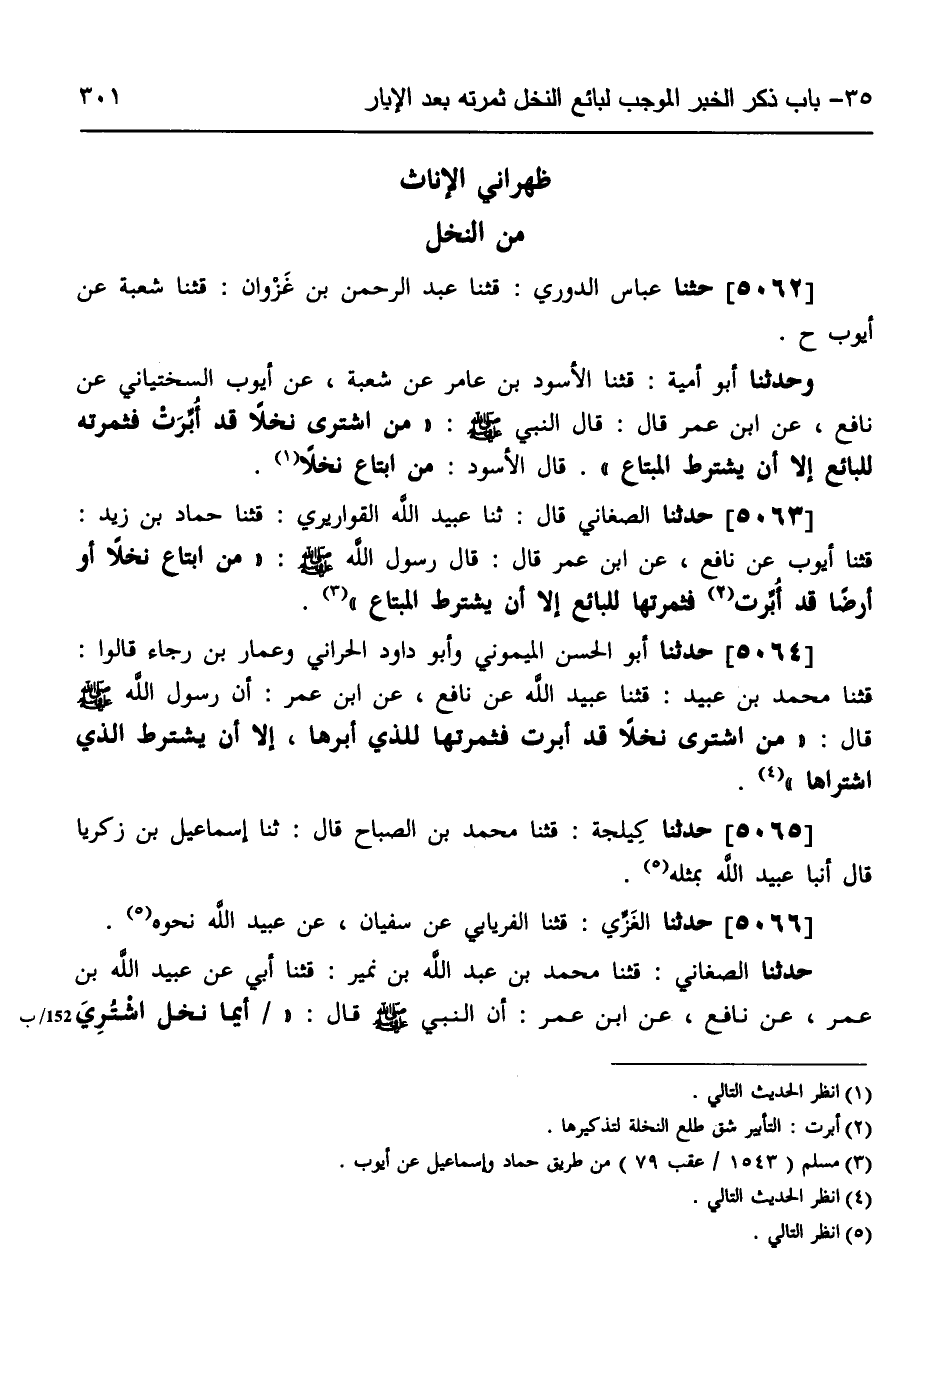 ٣٥- باب ذكر الخبر الموجب لبائع النخل ثمرته بعد الإبار ٣٠١
ظهراني الإناث
من النخل
[٥٠٦٢] حثنا عباس الدوري : قثنا عبد الرحمن بن غَزْوان : قثنا شعبة عن
أيوب ح .
وحدثنا أبو أمية : قثنا الأسود بن عامر عن شعبة ، عن أيوب السختياني عن
نافع ، عن ابن عمر قال : قال النبي ﷺ : « من اشترى نخلًا قد أُبِّرَتْ فثمرته
للبائع إلا أن يشترط المبتاع » . قال الأسود : من ابتاع نخلًا(١) .
[٥٠٦٣] حدثنا الصغاني قال : ثنا عبيد اللَّه القواريري : قثنا حماد بن زيد :
قثنا أيوب عن نافع ، عن ابن عمر قال : قال رسول اللَّه ﷺ : « من ابتاع نخلًا أو
أرضًا قد أُبِّرت(٢) فثمرتها للبائع إلا أن يشترط المبتاع »(٣) .
[٥٠٦٤] حدثنا أبو الحسن الميموني وأبو داود الحراني وعمار بن رجاء قالوا :
قثنا محمد بن عبيد : قثنا عبيد اللَّه عن نافع ، عن ابن عمر : أن رسول اللَّه ﷺ
قال : « من اشترى نخلًا قد أبرت فثمرتها للذي أبرها ، إلا أن يشترط الذي
اشتراها »(٤) .
[٥٠٦٥] حدثنا كِيلجة : قثنا محمد بن الصباح قال : ثنا إسماعيل بن زكريا
قال أنبا عبيد اللَّه بمثله(٥) .
[٥٠٦٦] حدثنا الغَزِّي : قثنا الفريابي عن سفيان ، عن عبيد اللَّه نحوه(٥) .
حدثنا الصغاني : قثنا محمد بن عبد اللَّه بن نمير : قثنا أبي عن عبيد اللَّه بن
عمر ، عن نافع ، عن ابن عمر : أن النبي ﷺ قال : « / أيما نخل اشْتُرِيَ 152/ب
(١) انظر الحديث التالي .
(٢) أبرت : التأبير شق طلع النخلة لتذكيرها .
(٣) مسلم ( ١٥٤٣ / عقب ٧٩ ) من طريق حماد وإسماعيل عن أيوب .
(٤) انظر الحديث التالي .
(٥) انظر التالي .